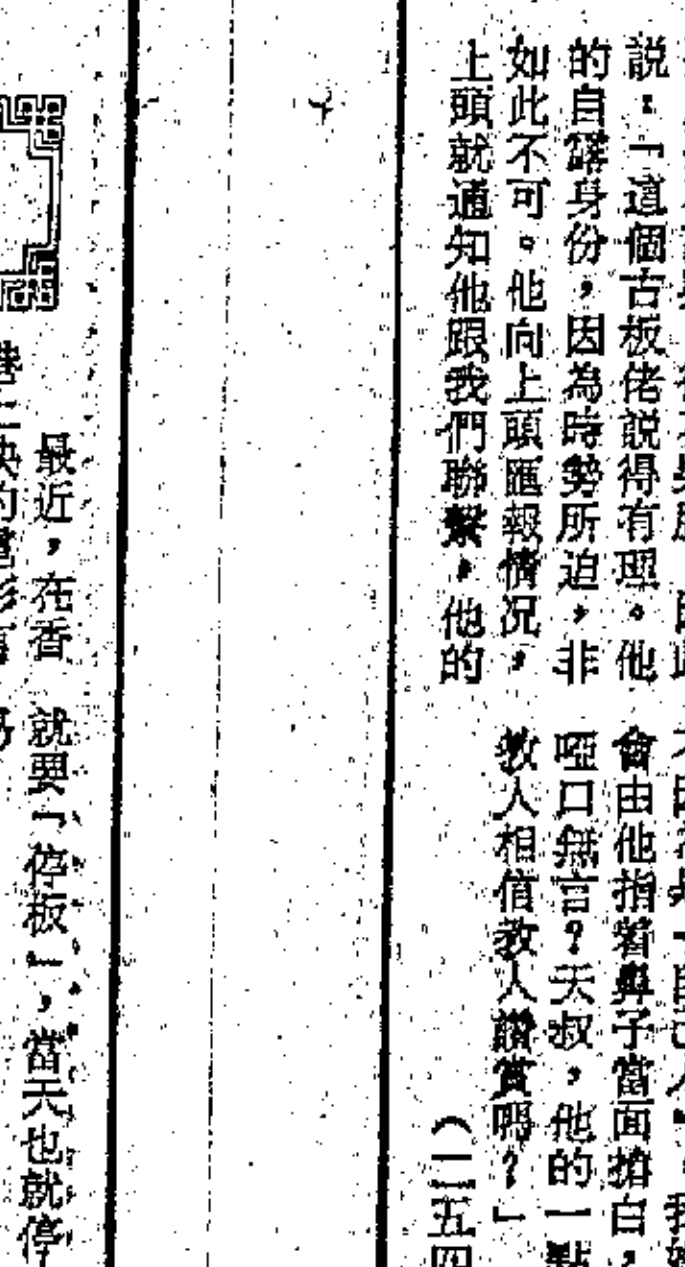 説：「這個古板佬説得有理。他
的自露身份，因為時勢所迫，非
如此不可。他向上頭匯報情况，
上頭就通知他跟我們聯繫，他的
會由他指着鼻子當面搶白，
啞口無言？天叔，他的一點
教人相信教人讚賞嗎？」
（二五四
最近，在香
就要「停板」，當天也就停